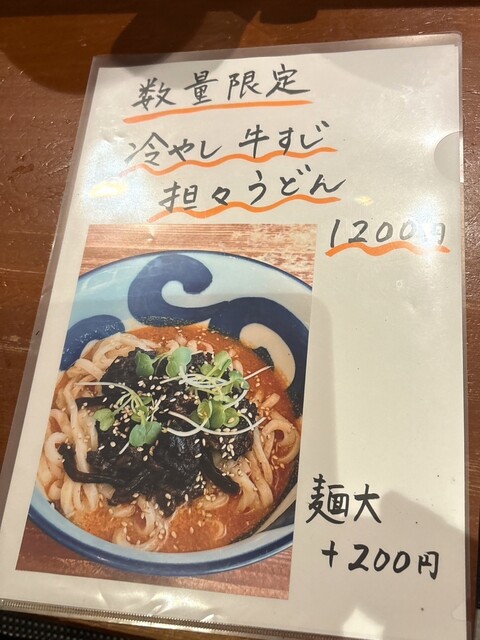 数量限定
冷やし牛すじ
担々うどん
1200円
麺大
+200円